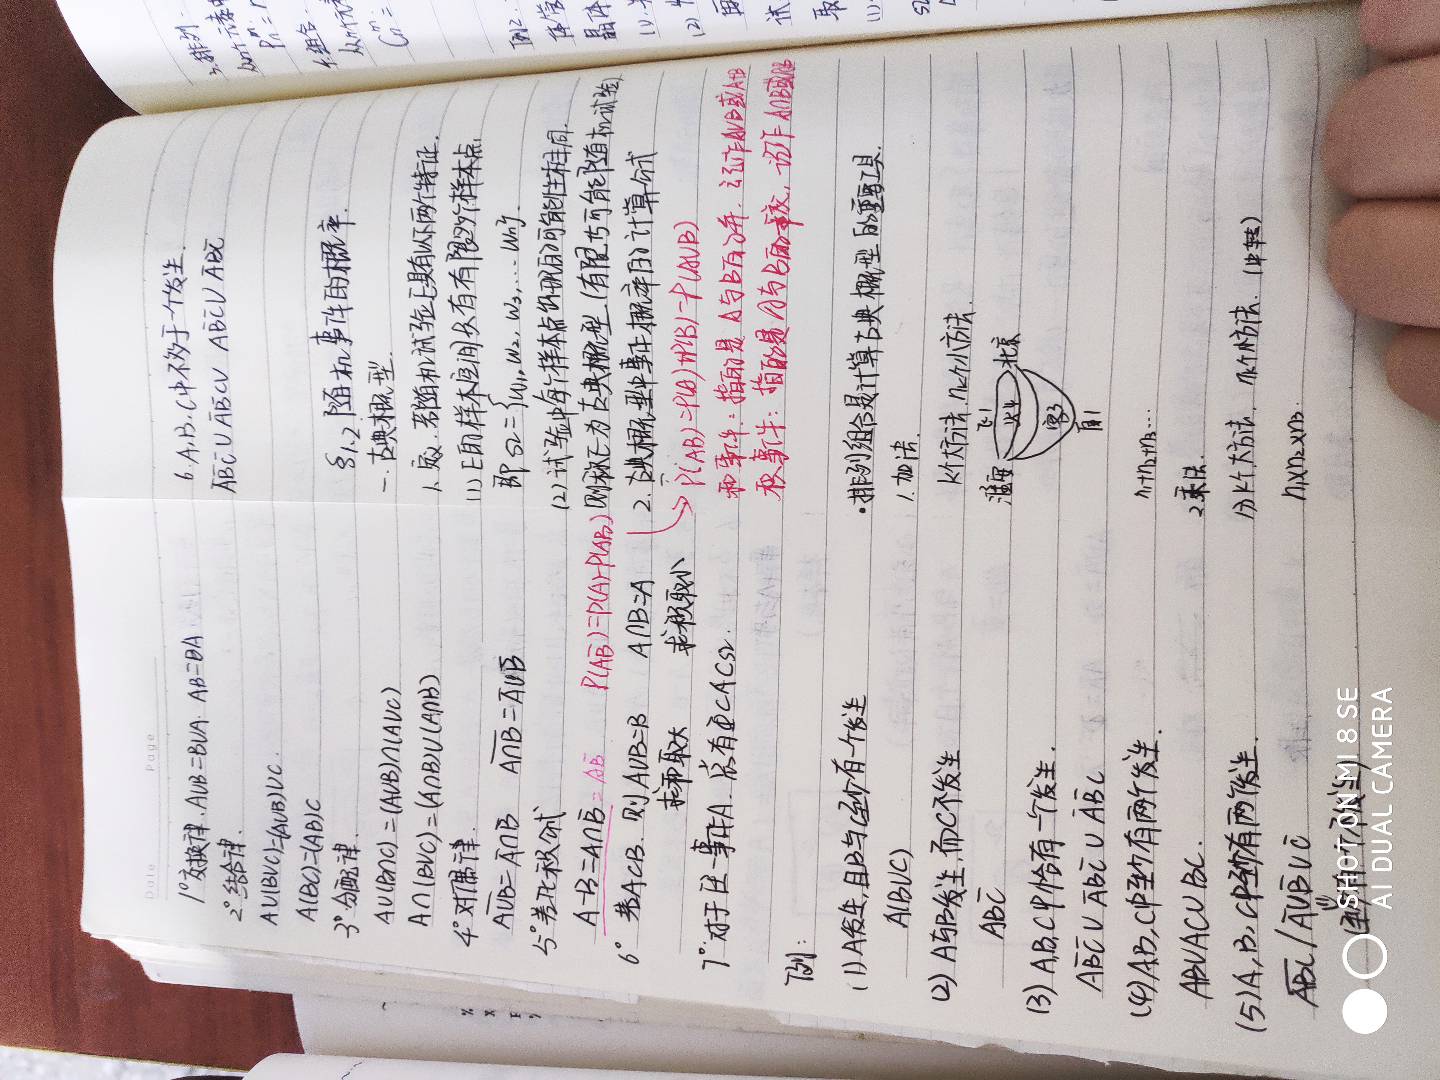 Date Page
1° 交换律. A∪B=B∪A. AB=BA
2° 结合律.
A∪(B∪C)=(A∪B)∪C.
A(BC)=(AB)C
3° 分配律.
A∪(B∩C)=(A∪B)∩(A∪C)
A∩(B∪C)=(A∩B)∪(A∩B)
4° 对偶律.
A̅∪̅B̅=A̅∩B̅ A̅∩̅B̅=A̅∪B̅
5° 差化积公式
A-B=A∩B̅=AB̅ P(AB̅)=P(A)-P(AB)
6° 若A⊂B. 则A∪B=B A∩B=A
求和取大 求积取小
7° 对于任一事件A. 总有∅⊂A⊂Ω.
例:
(1) A发生,且B与C至少有一个发生
A(B∪C)
(2) A与B发生,而C不发生
ABC̅
(3) A,B,C中恰有一个发生.
AB̅C̅∪A̅BC̅∪A̅B̅C
(4) A,B,C中至少有两个发生.
AB∪AC∪BC.
(5) A,B,C中至少有两个发生.
A̅B̅C̅/A̅∪B̅∪C̅
(至少有一个不发生)
6. A,B,C中不多于一个发生.
A̅B̅C̅∪A̅B̅C∪ AB̅C̅∪A̅BC̅
§1.2 随机事件的概率.
一. 古典概型.
1. 定义. 若随机试验E具有以下两个特征.
(1) E的样本空间只有有限多个样本点,
即Ω={ω1, ω2, ω3,... ωn}.
(2) 试验中每个样本点出现的可能性相同.
则称E为古典概型. (有限等可能随机试验)
2. 古典概型中事件概率的计算公式
P(AB)=P(A)+P(B)-P(A∪B)
和事件: 指的是A与B的并. 记作A∪B或A+B
积事件: 指的是A与B的交, 记作A∩B或AB
·排列组合是计算古典概型的重要工具.
1. 加法.
K个大方法. nk个小方法.
飞1
淮安 火4 北京
客3
自1
n1+n2+n3...
2. 乘法.
分K个大方法. nk个小方法. (中转)
n1×n2×n3.
3. 排列.
从n个元素中
Pnm=
4. 组合.
从n个元素
Cnm=
例2.
晶体
(1).
(2)
试
取
(1).
SHOT ON MI 8 SE
AI DUAL CAMERA